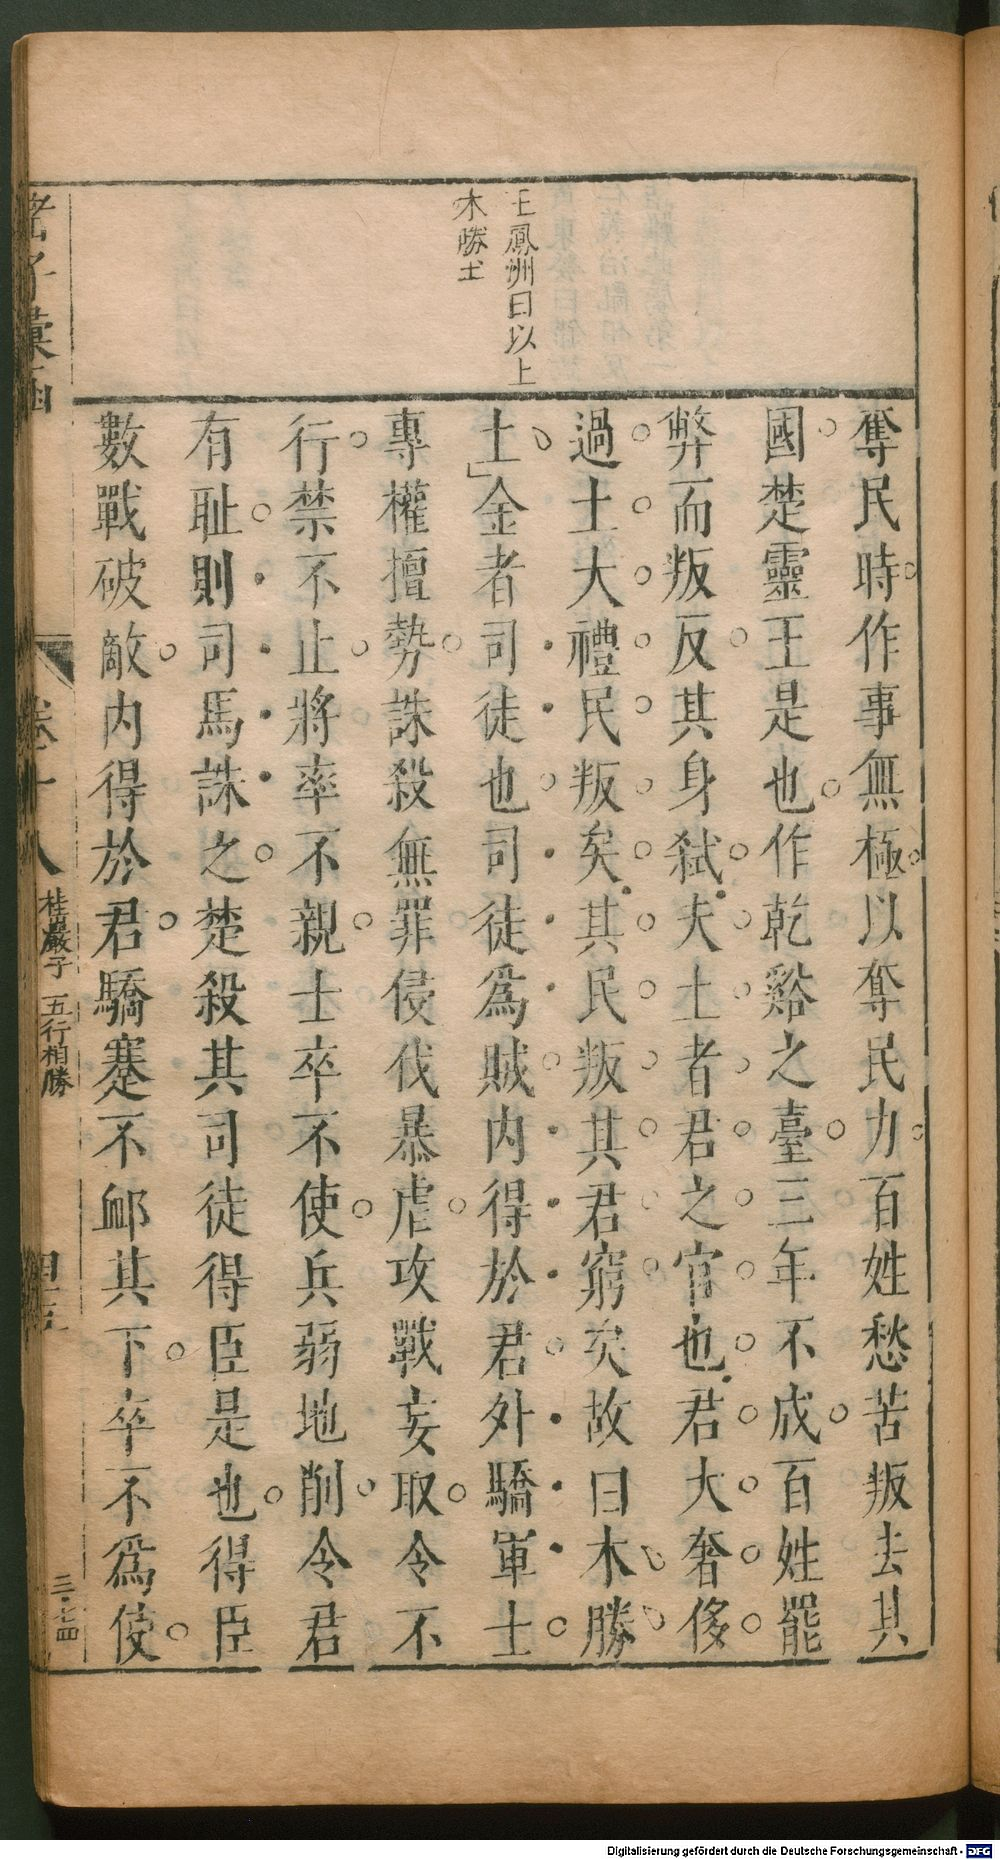 王鳳洲曰以上
木勝土
奪民時作事無極以奪民力百姓愁苦叛去其
國楚靈王是也作乾谿之臺三年不成百姓罷
弊而叛反其身弑夫土者君之官也君大奢侈
過土大禮民叛矣其民叛其君窮矣故曰木勝
土金者司徒也司徒爲賊内得於君外驕軍士
專權擅勢誅殺無罪侵伐暴虐攻戰妄取令不
行禁不止將率不親士卒不使兵弱地削令君
有耻則司馬誅之楚殺其司徒得臣是也得臣
數戰破敵内得於君驕蹇不衈其下卒不爲使
諸子彙函
卷十八
桂巖子 五行相勝
四十五
Digitalisierung gefördert durch die Deutsche Forschungsgemeinschaft - DFG